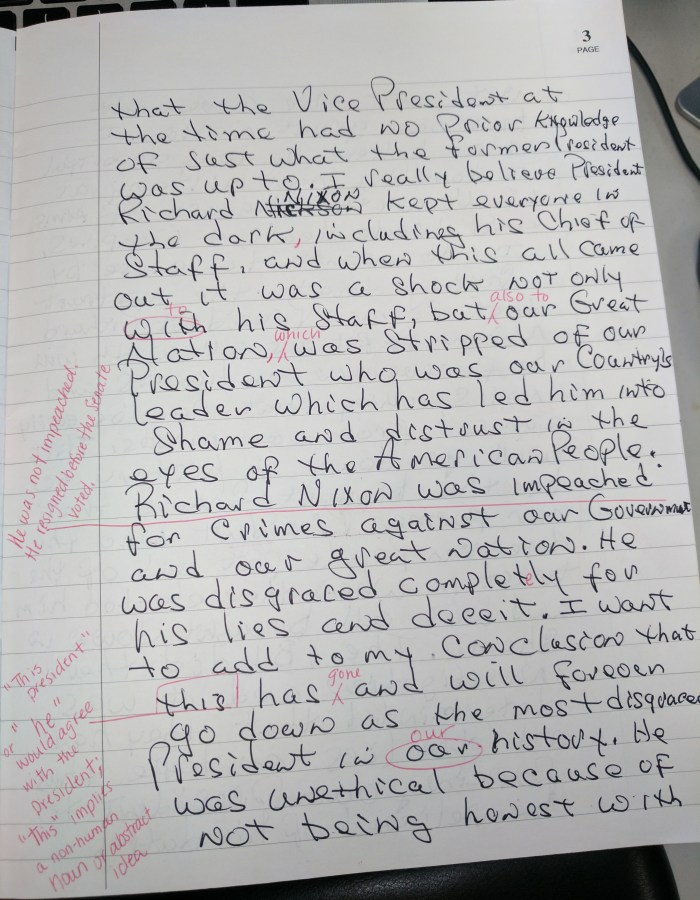 3
PAGE
that the Vice President at
the time had no Prior knowledge
of Just what the former President
was up to. I really believe President
NIXON
Richard NICKSON kept everyone in
the dark, including his Chief of
Staff, and when this all came
out it was a shock not only
to also to
with his Staff, but our Great
which
Nation, was Stripped of our
President who was our Country's
Leader which has led him into
Shame and distrust in the
eyes of the American People.
Richard Nixon was impeached
for Crimes against our Government
and our great Nation. He
was disgraced completely for
his lies and deceit. I want
to add to my Conclusion that
gone
this has and will foreoen
go down as the most disgraced
our
President in our history. He
was unethical because of
Not being honest with
He was not impeached.
He resigned before the Senate
voted.
"This
president"
or "he"
would agree
with the
president;
"This" implies
a non-human
noun or abstract
idea